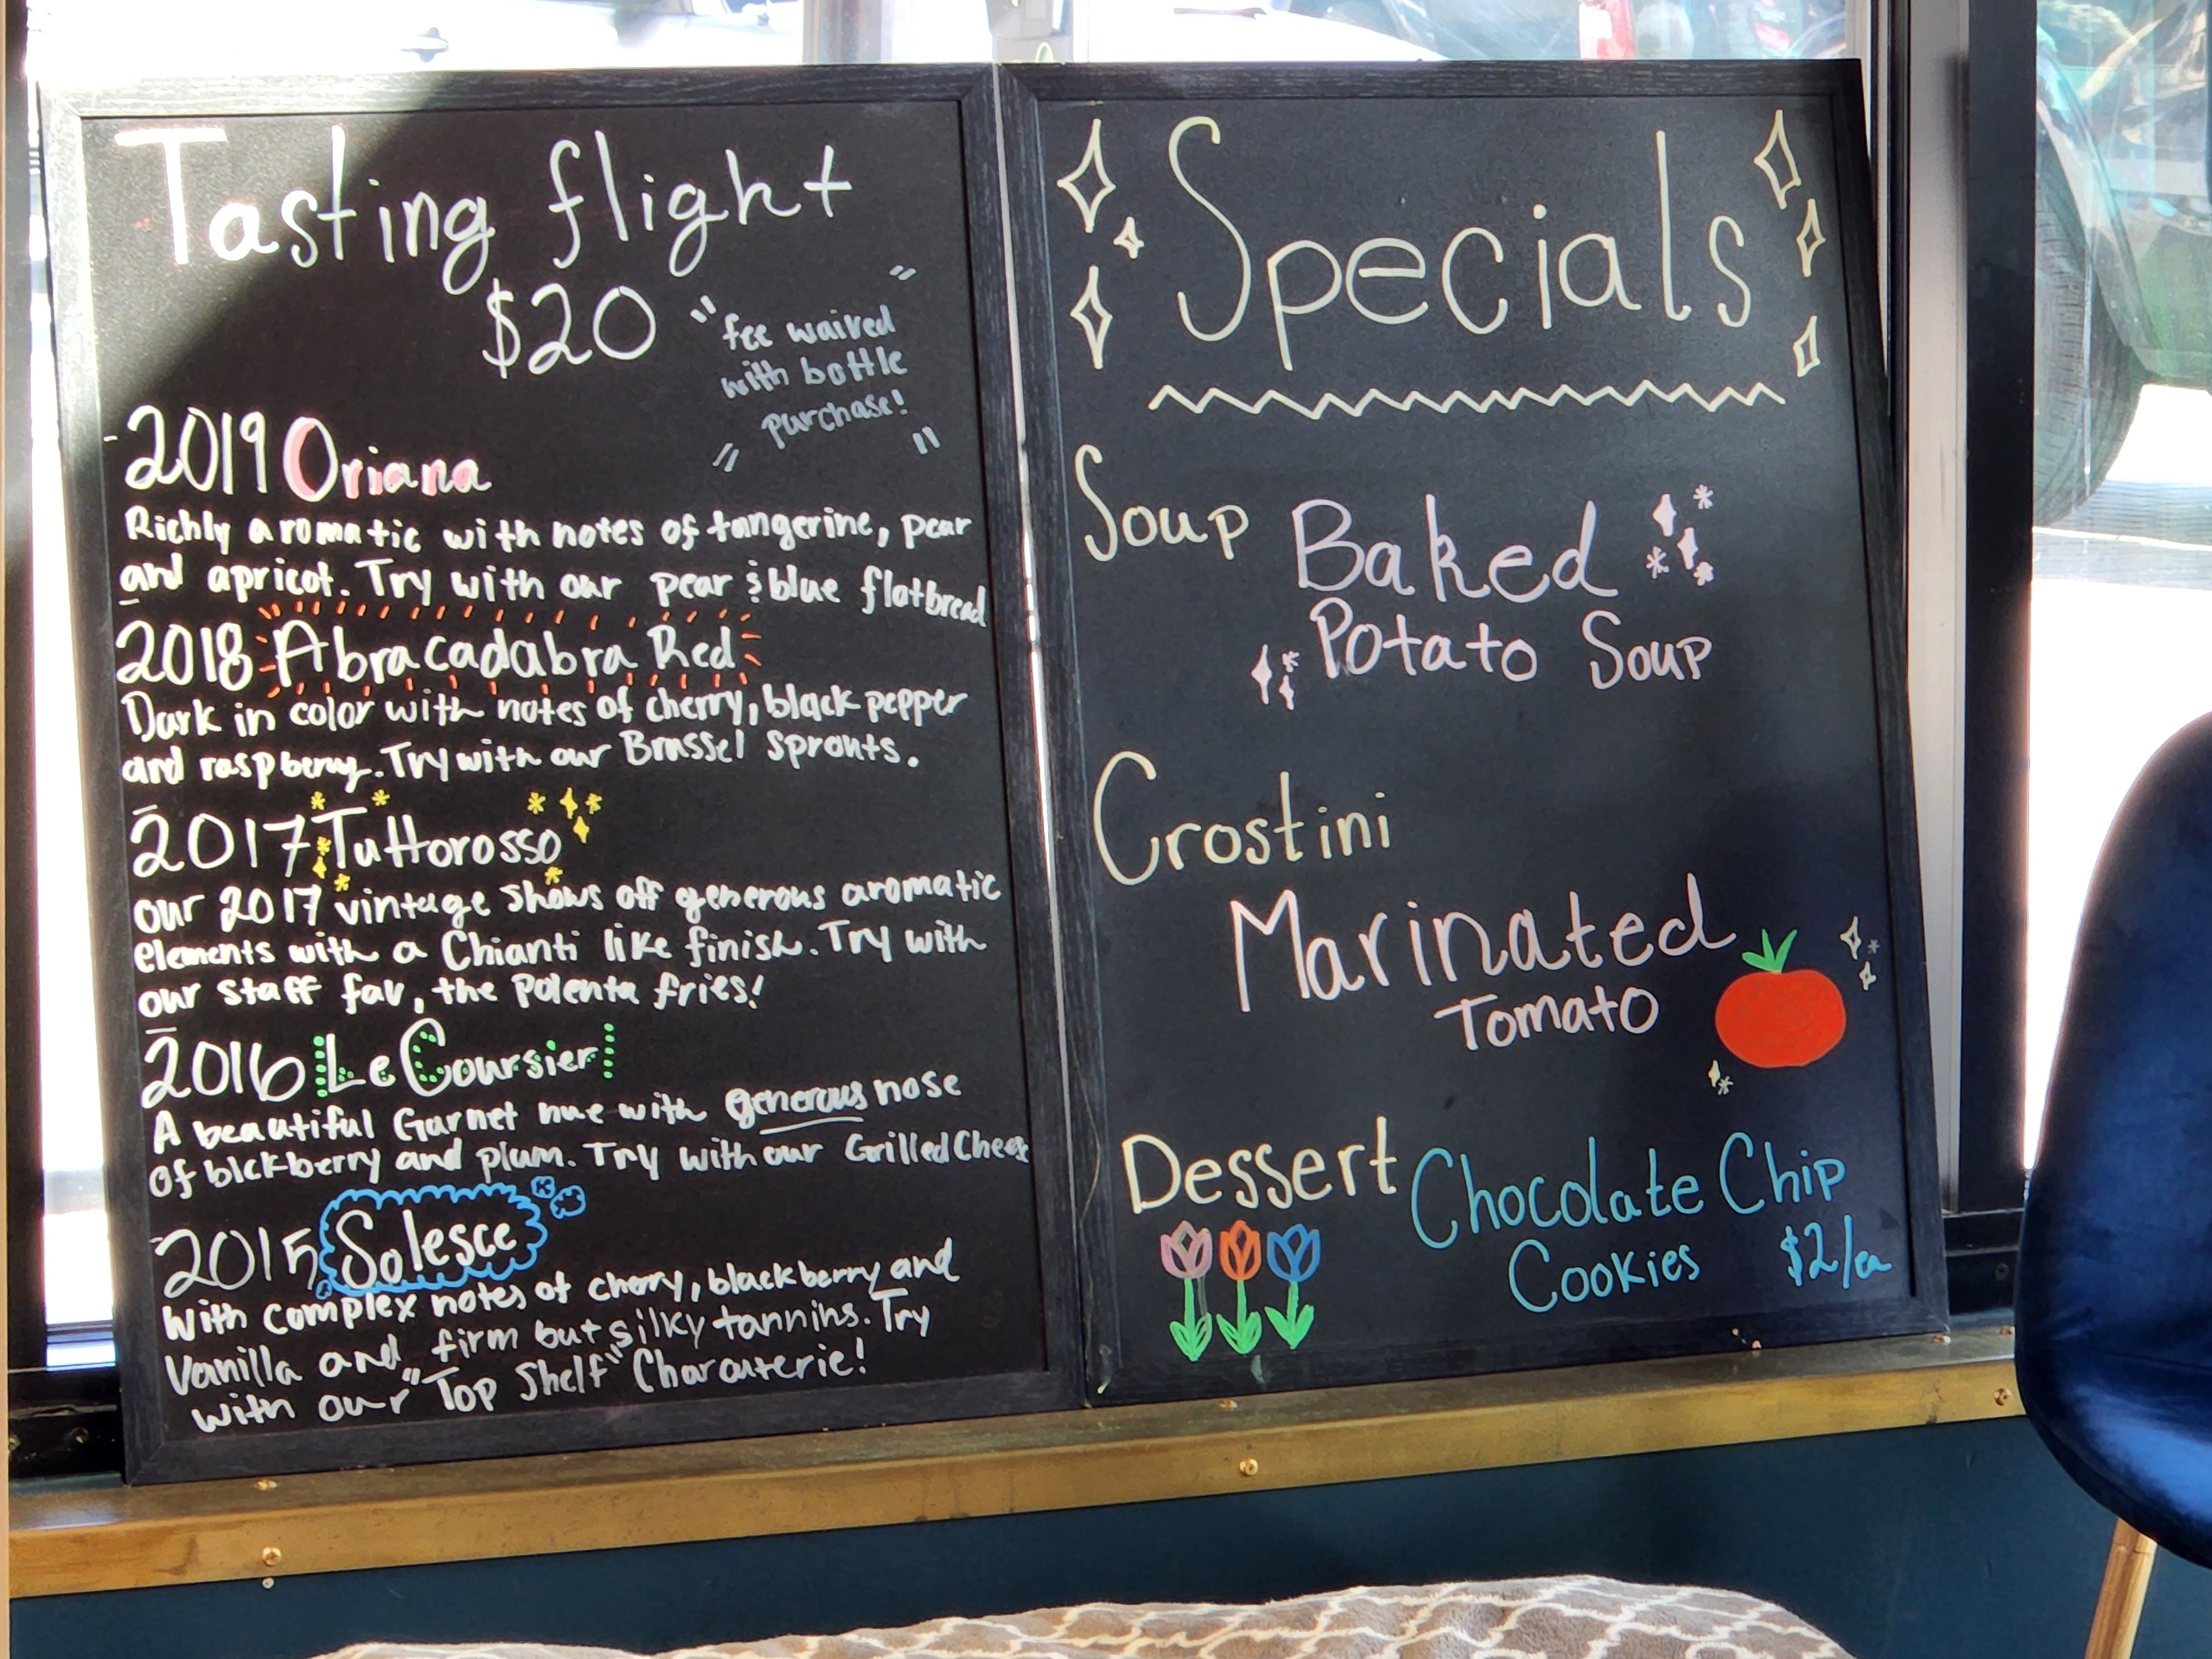 Tasting flight
$20
"fee waived
with bottle
purchase!"
2019 Oriana
Richly aromatic with notes of tangerine, pear
and apricot. Try with our pear & blue flatbread
2018 Abracadabra Red
Dark in color with notes of cherry, black pepper
and raspberry. Try with our Brussel Sprouts.
2017 Tuttorosso
our 2017 vintage shows off generous aromatic
elements with a Chianti like finish. Try with
our staff fav, the Polenta fries!
2016 Le Coursier
A beautiful Garnet hue with generous nose
of blckberry and plum. Try with our Grilled Cheese
2015 Solesce
With complex notes of cherry, blackberry and
Vanilla and firm but silky tannins. Try
with our "Top Shelf" Charcuterie!
Specials
Soup Baked
Potato Soup
Crostini
Marinated
Tomato
Dessert Chocolate Chip
Cookies $2/ea